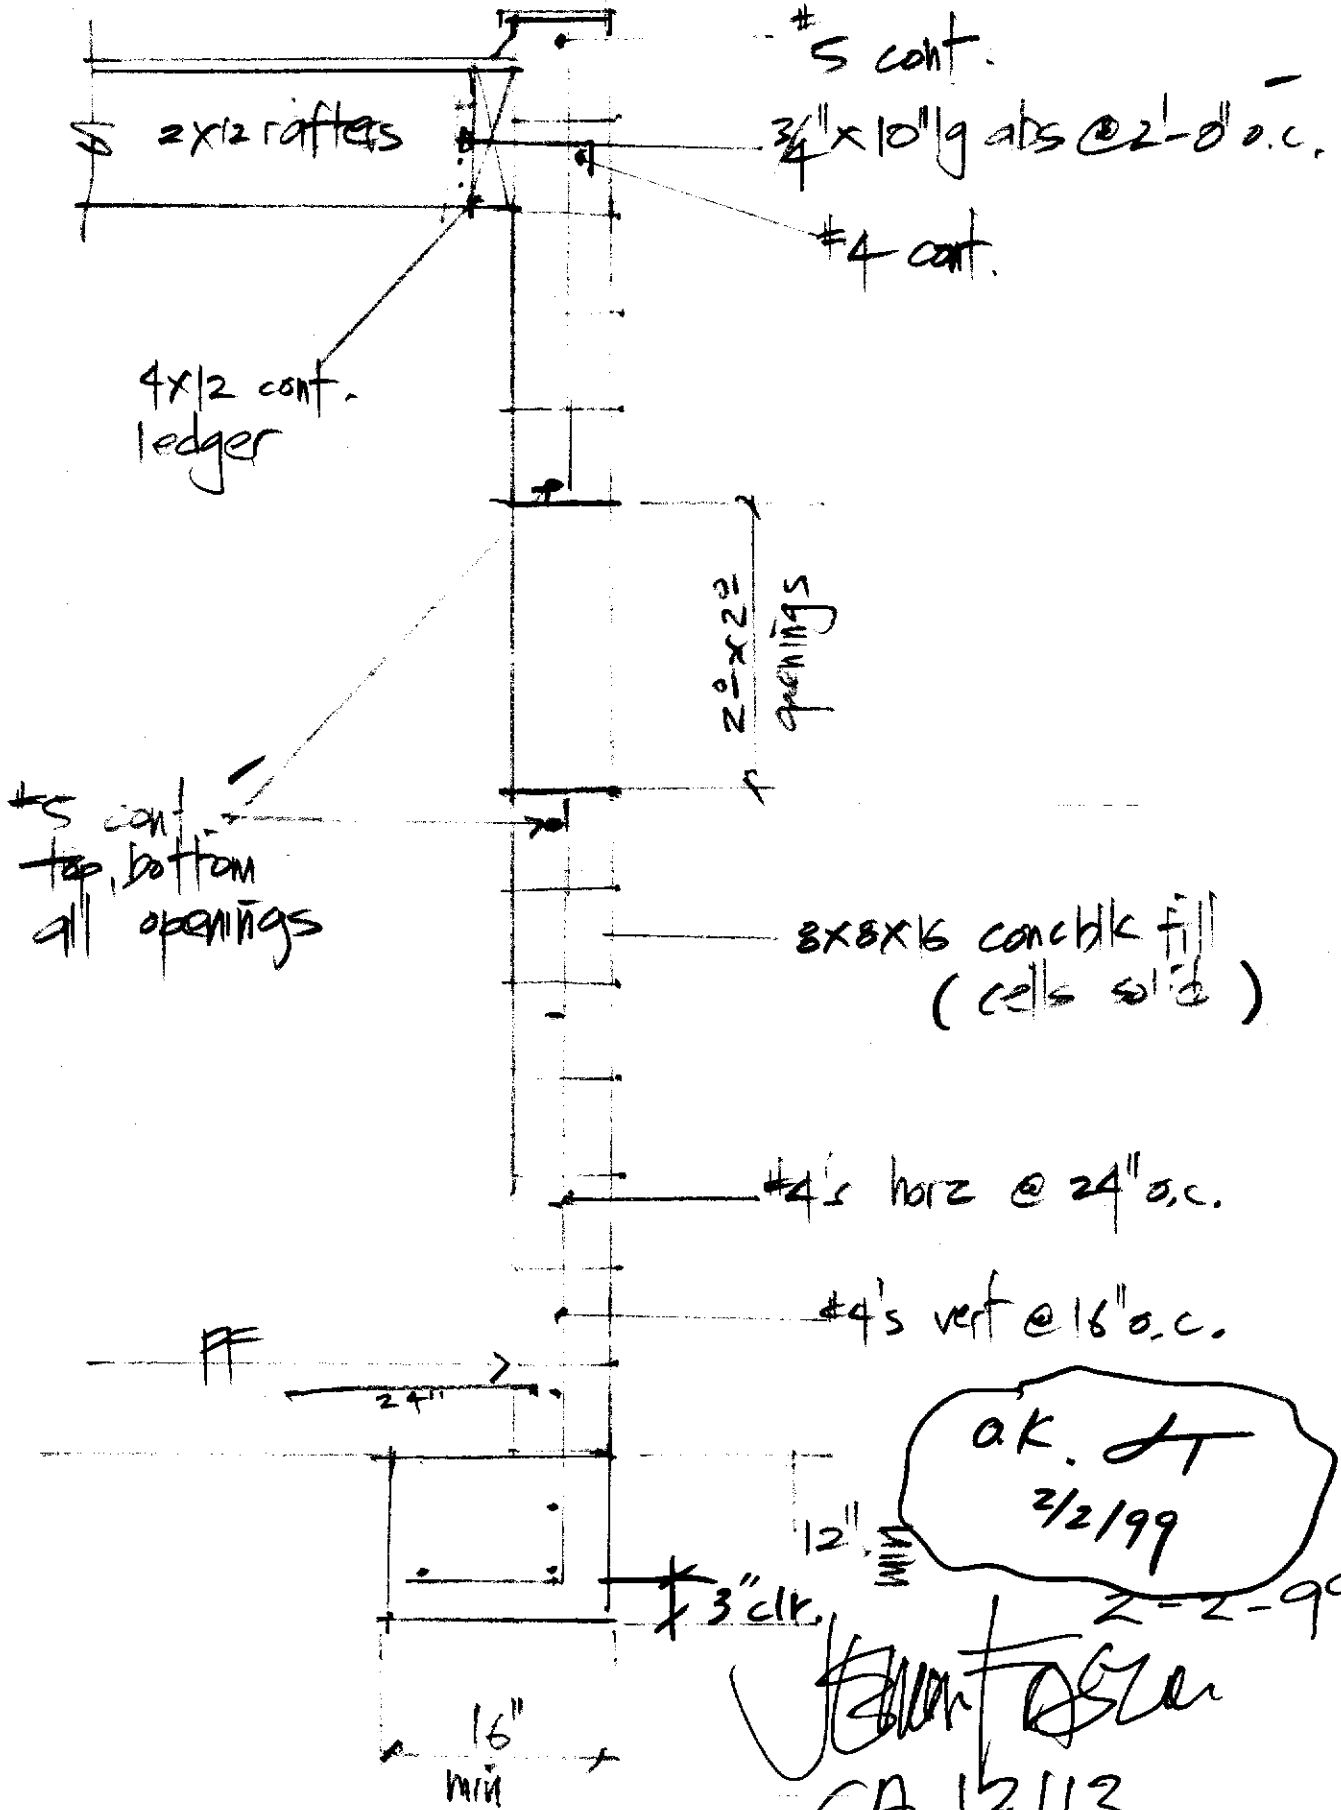 #5 cont.
2x12 rafters
3/4"x10"lg abs @ 2'-0" o.c.
#4 cont.
4x12 cont.
ledger
2⁰x2⁰
openings
#5 cont.
top, bottom
all openings
8x8x16 conc blk fill
(cells solid)
#4's horz @ 24" o.c.
#4's vert @ 16" o.c.
FF
24"
O.K. JT
2/2/99
12" min
3" clr.
2-2-99
16"
min
CA 12113